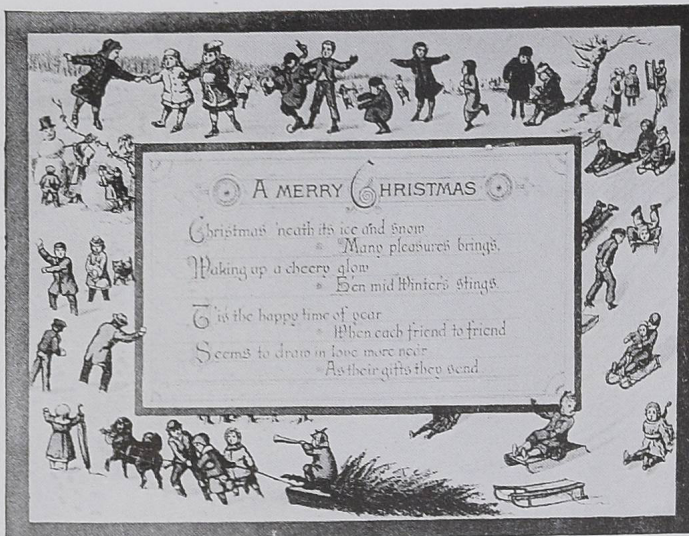 A MERRY CHRISTMAS
Christmas 'neath its ice and snow
Many pleasures brings,
Waking up a cheery glow
E'en mid Winter's stings.
T'is the happy time of year
When each friend to friend
Seems to draw in love more near
As their gifts they send